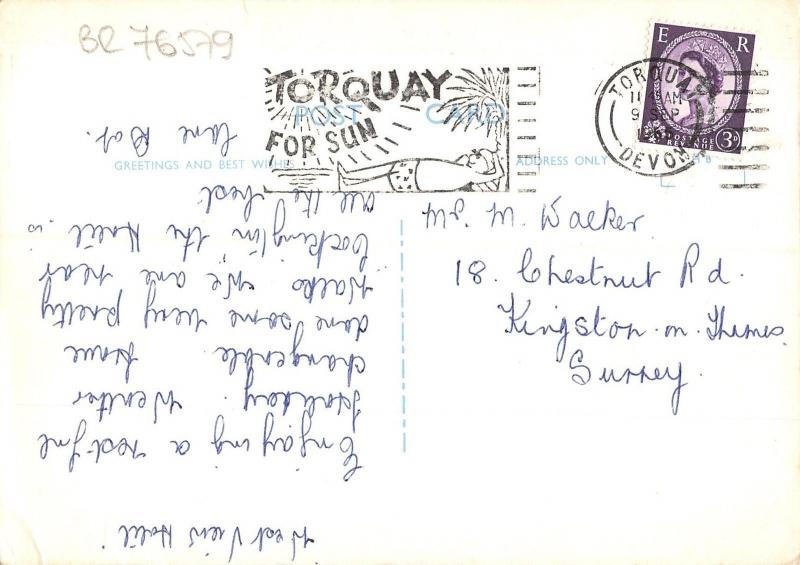 BR 76579
TORQUAY
FOR SUN
POST CARD
GREETINGS AND BEST WISHE
ADDRESS ONLY
E R
POSTAGE
REVENUE
3D
TORQUAY
11 AM
9 SEP
DEVON
M. Walker.
18. Chestnut Rd.
Kingston-on-Thames
Surrey.
West View Hotel
Enjoying a rest-ful
Holiday. Weather
changeable. have
done some very pretty
walks We are near
Cocking(tn the Hotel is
All the best
Love